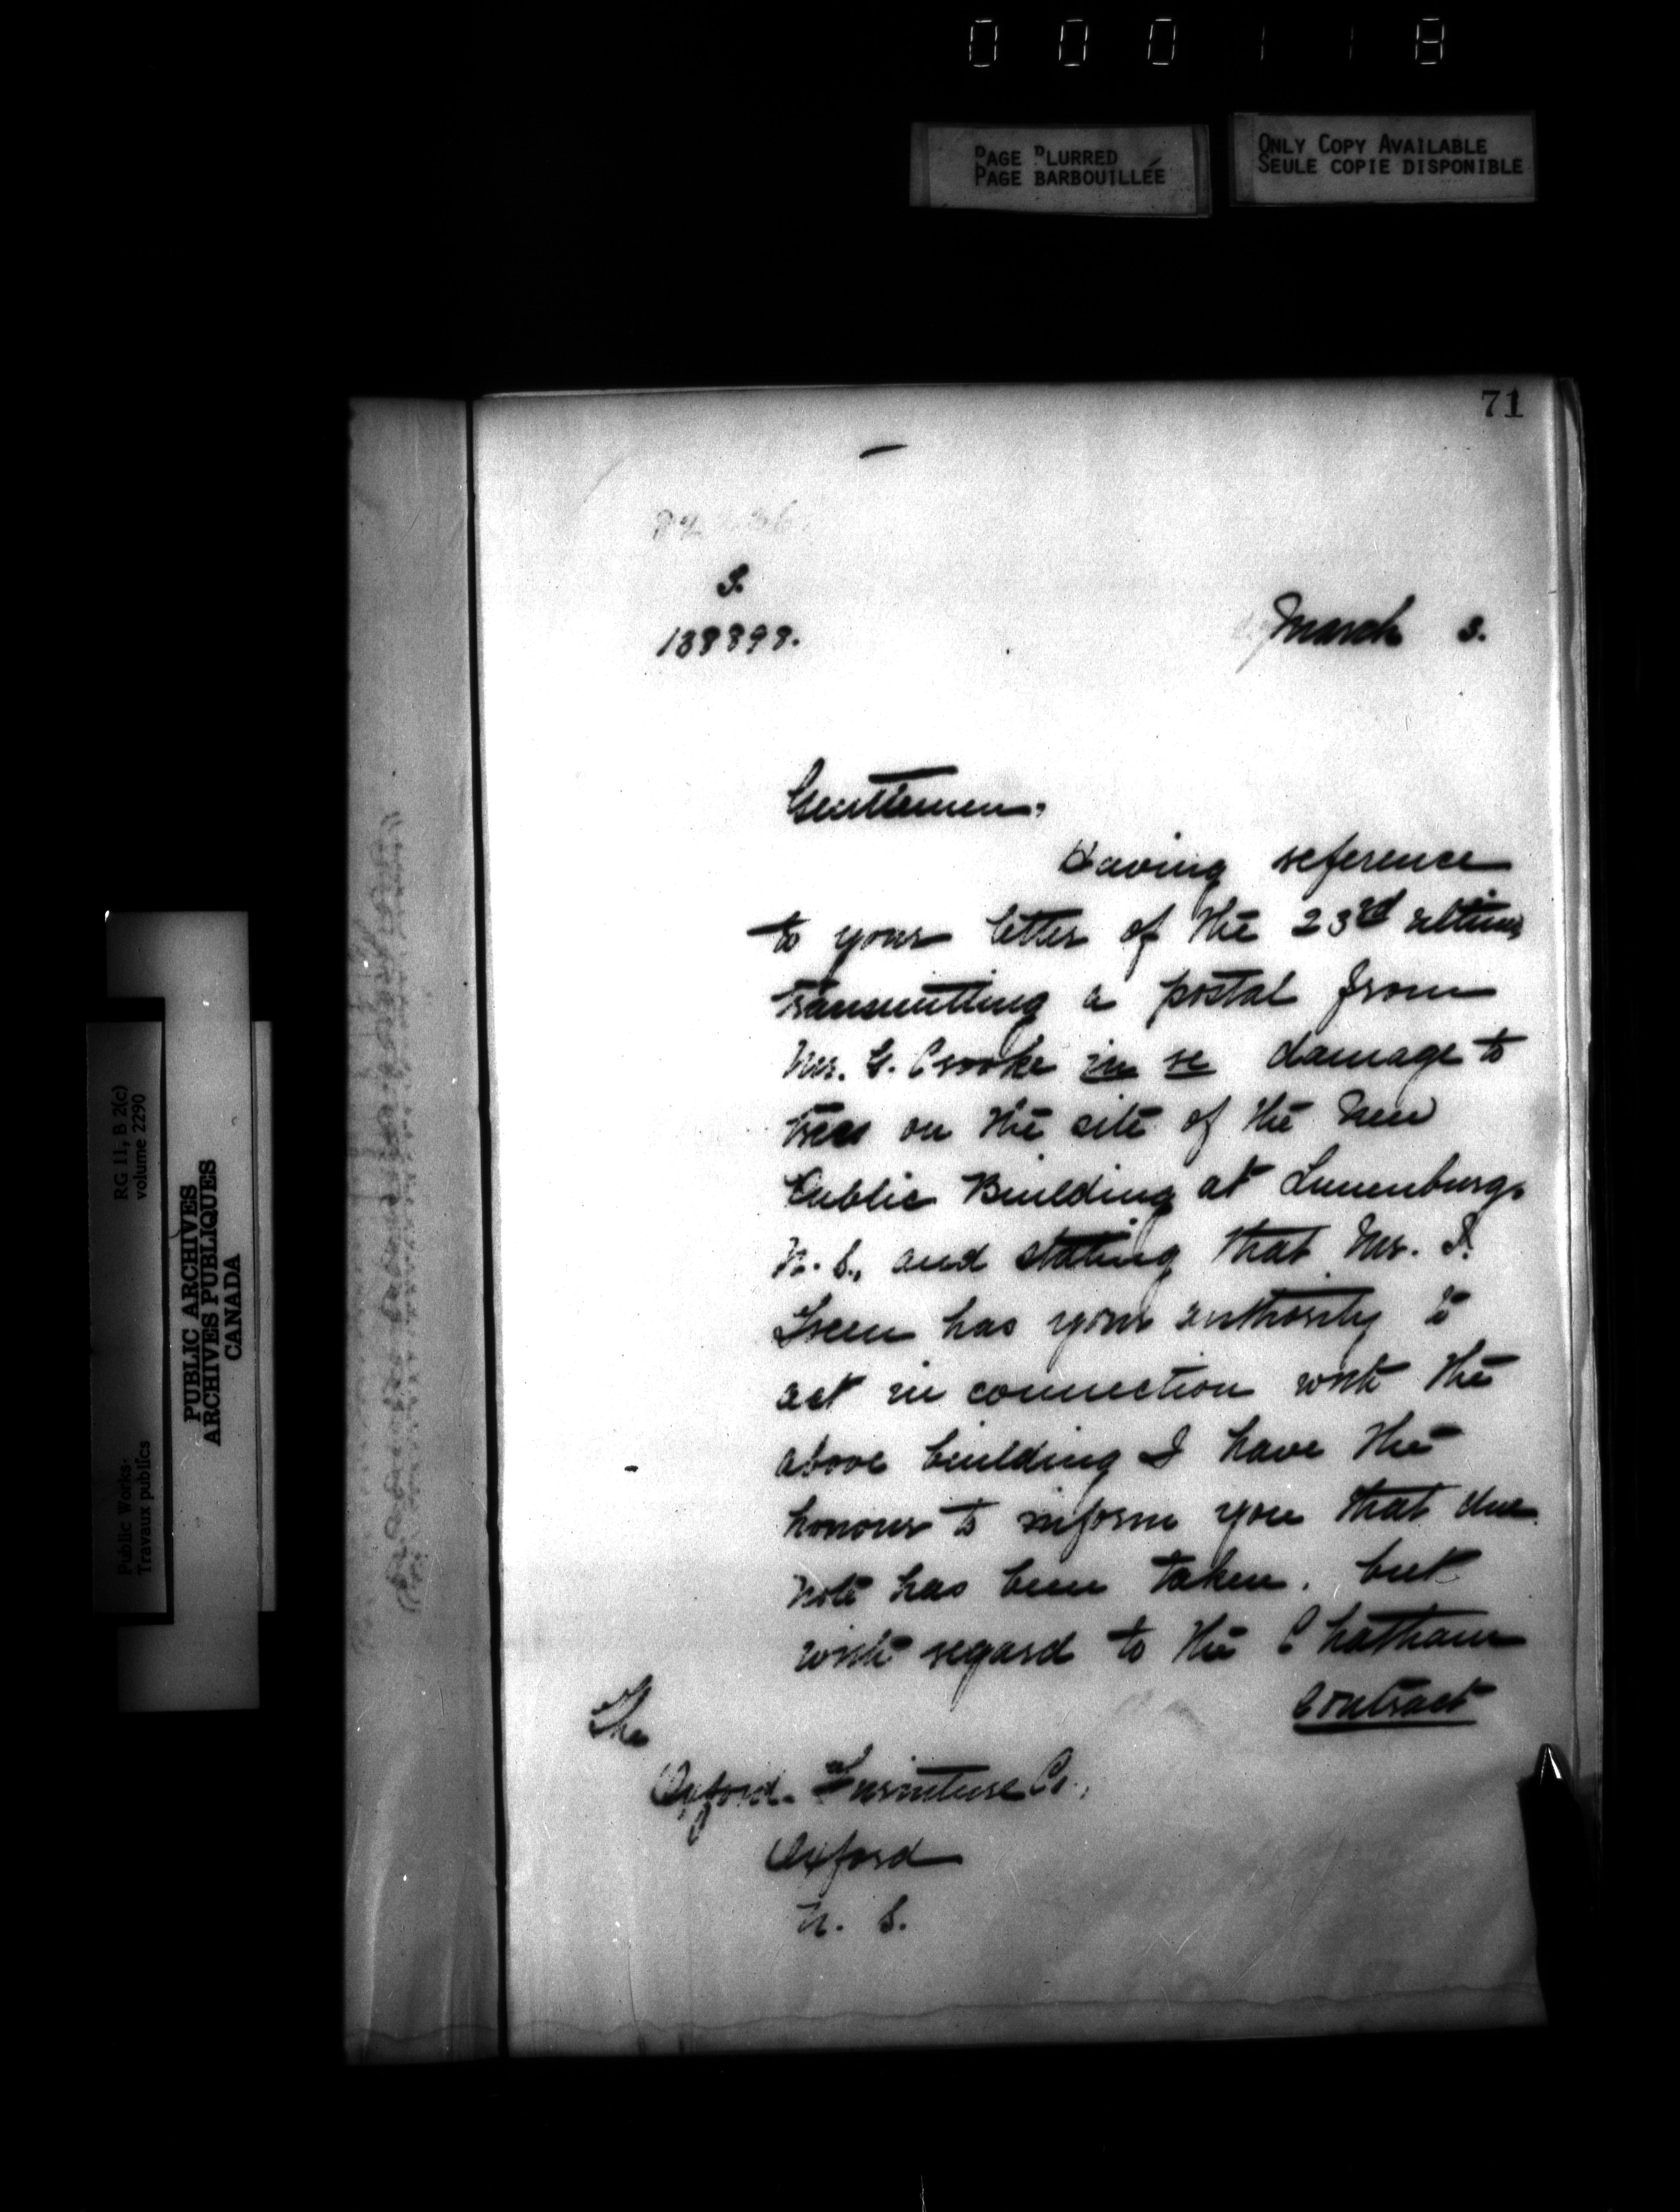 000118
PAGE BLURRED
PAGE BARBOUILLÉE
ONLY COPY AVAILABLE
SEULE COPIE DISPONIBLE
71
S.
138898.
March 3.
Gentlemen,
Having reference
to your letter of the 23rd ultimo
transmitting a postal from
Mr. G. Crooke in re damage to
trees on the site of the New
Public Building at Lunenburg,
N. S., and stating that Mr. I.
Green has your authority to
act in connection with the
above building I have the
honour to inform you that due
note has been taken, but
with regard to the Chatham
contract
The
Oxford Furniture Co.,
Oxford
N. S.
RG 11, B 2(c)
volume 2290
Public Works-
Travaux publics
PUBLIC ARCHIVES
ARCHIVES PUBLIQUES
CANADA